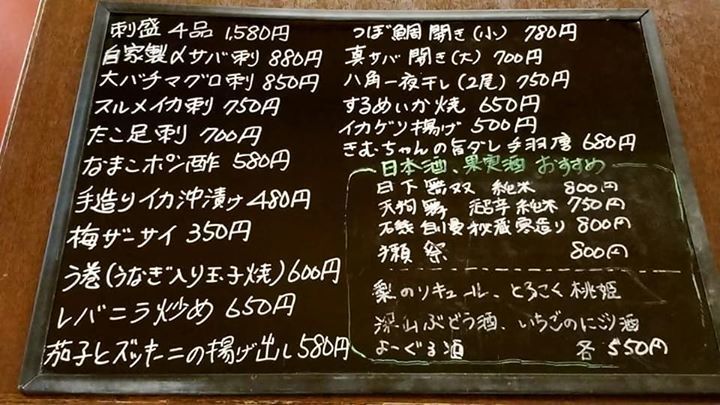 刺盛 4品 1,580円
自家製〆サバ刺 880円
大バチマグロ刺 850円
スルメイカ刺 750円
たこ足刺 700円
なまこポン酢 580円
手造りイカ沖漬け 480円
梅ザーサイ 350円
う巻(うなぎ入り玉子焼)600円
レバニラ炒め 650円
茄子とズッキーニの揚げ出し 580円
つぼ鯛開き(小) 780円
真サバ開き(大) 700円
八角一夜干し(2尾) 750円
するめいか焼 650円
イカゲソ揚げ 500円
きむちゃんの旨ダレ手羽唐 680円
日本酒、果実酒 おすすめ
日下無双 純米 800円
天狗舞 超辛純米 750円
自慢 秘蔵 造り 800円
獺祭 800円
梨のリキュール、とろこく桃姫
深山ぶどう酒、いちごのにごり酒
よーぐる酒 各 550円